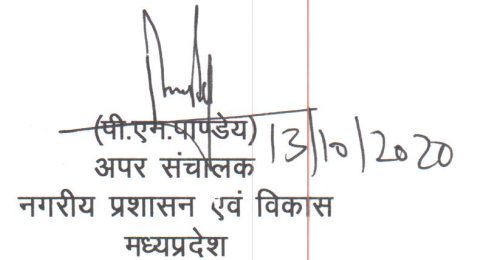 (पी.एम.पाण्डेय) 13/10/2020
अपर संचालक
नगरीय प्रशासन एवं विकास
मध्यप्रदेश